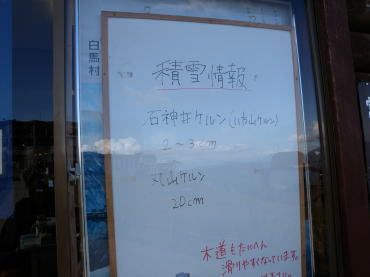 白馬村
積雪情報
石神井ケルン(八方山ケルン)
2〜3cm
丸山ケルン
20cm
木道もたいへん
滑りやすくなっています。